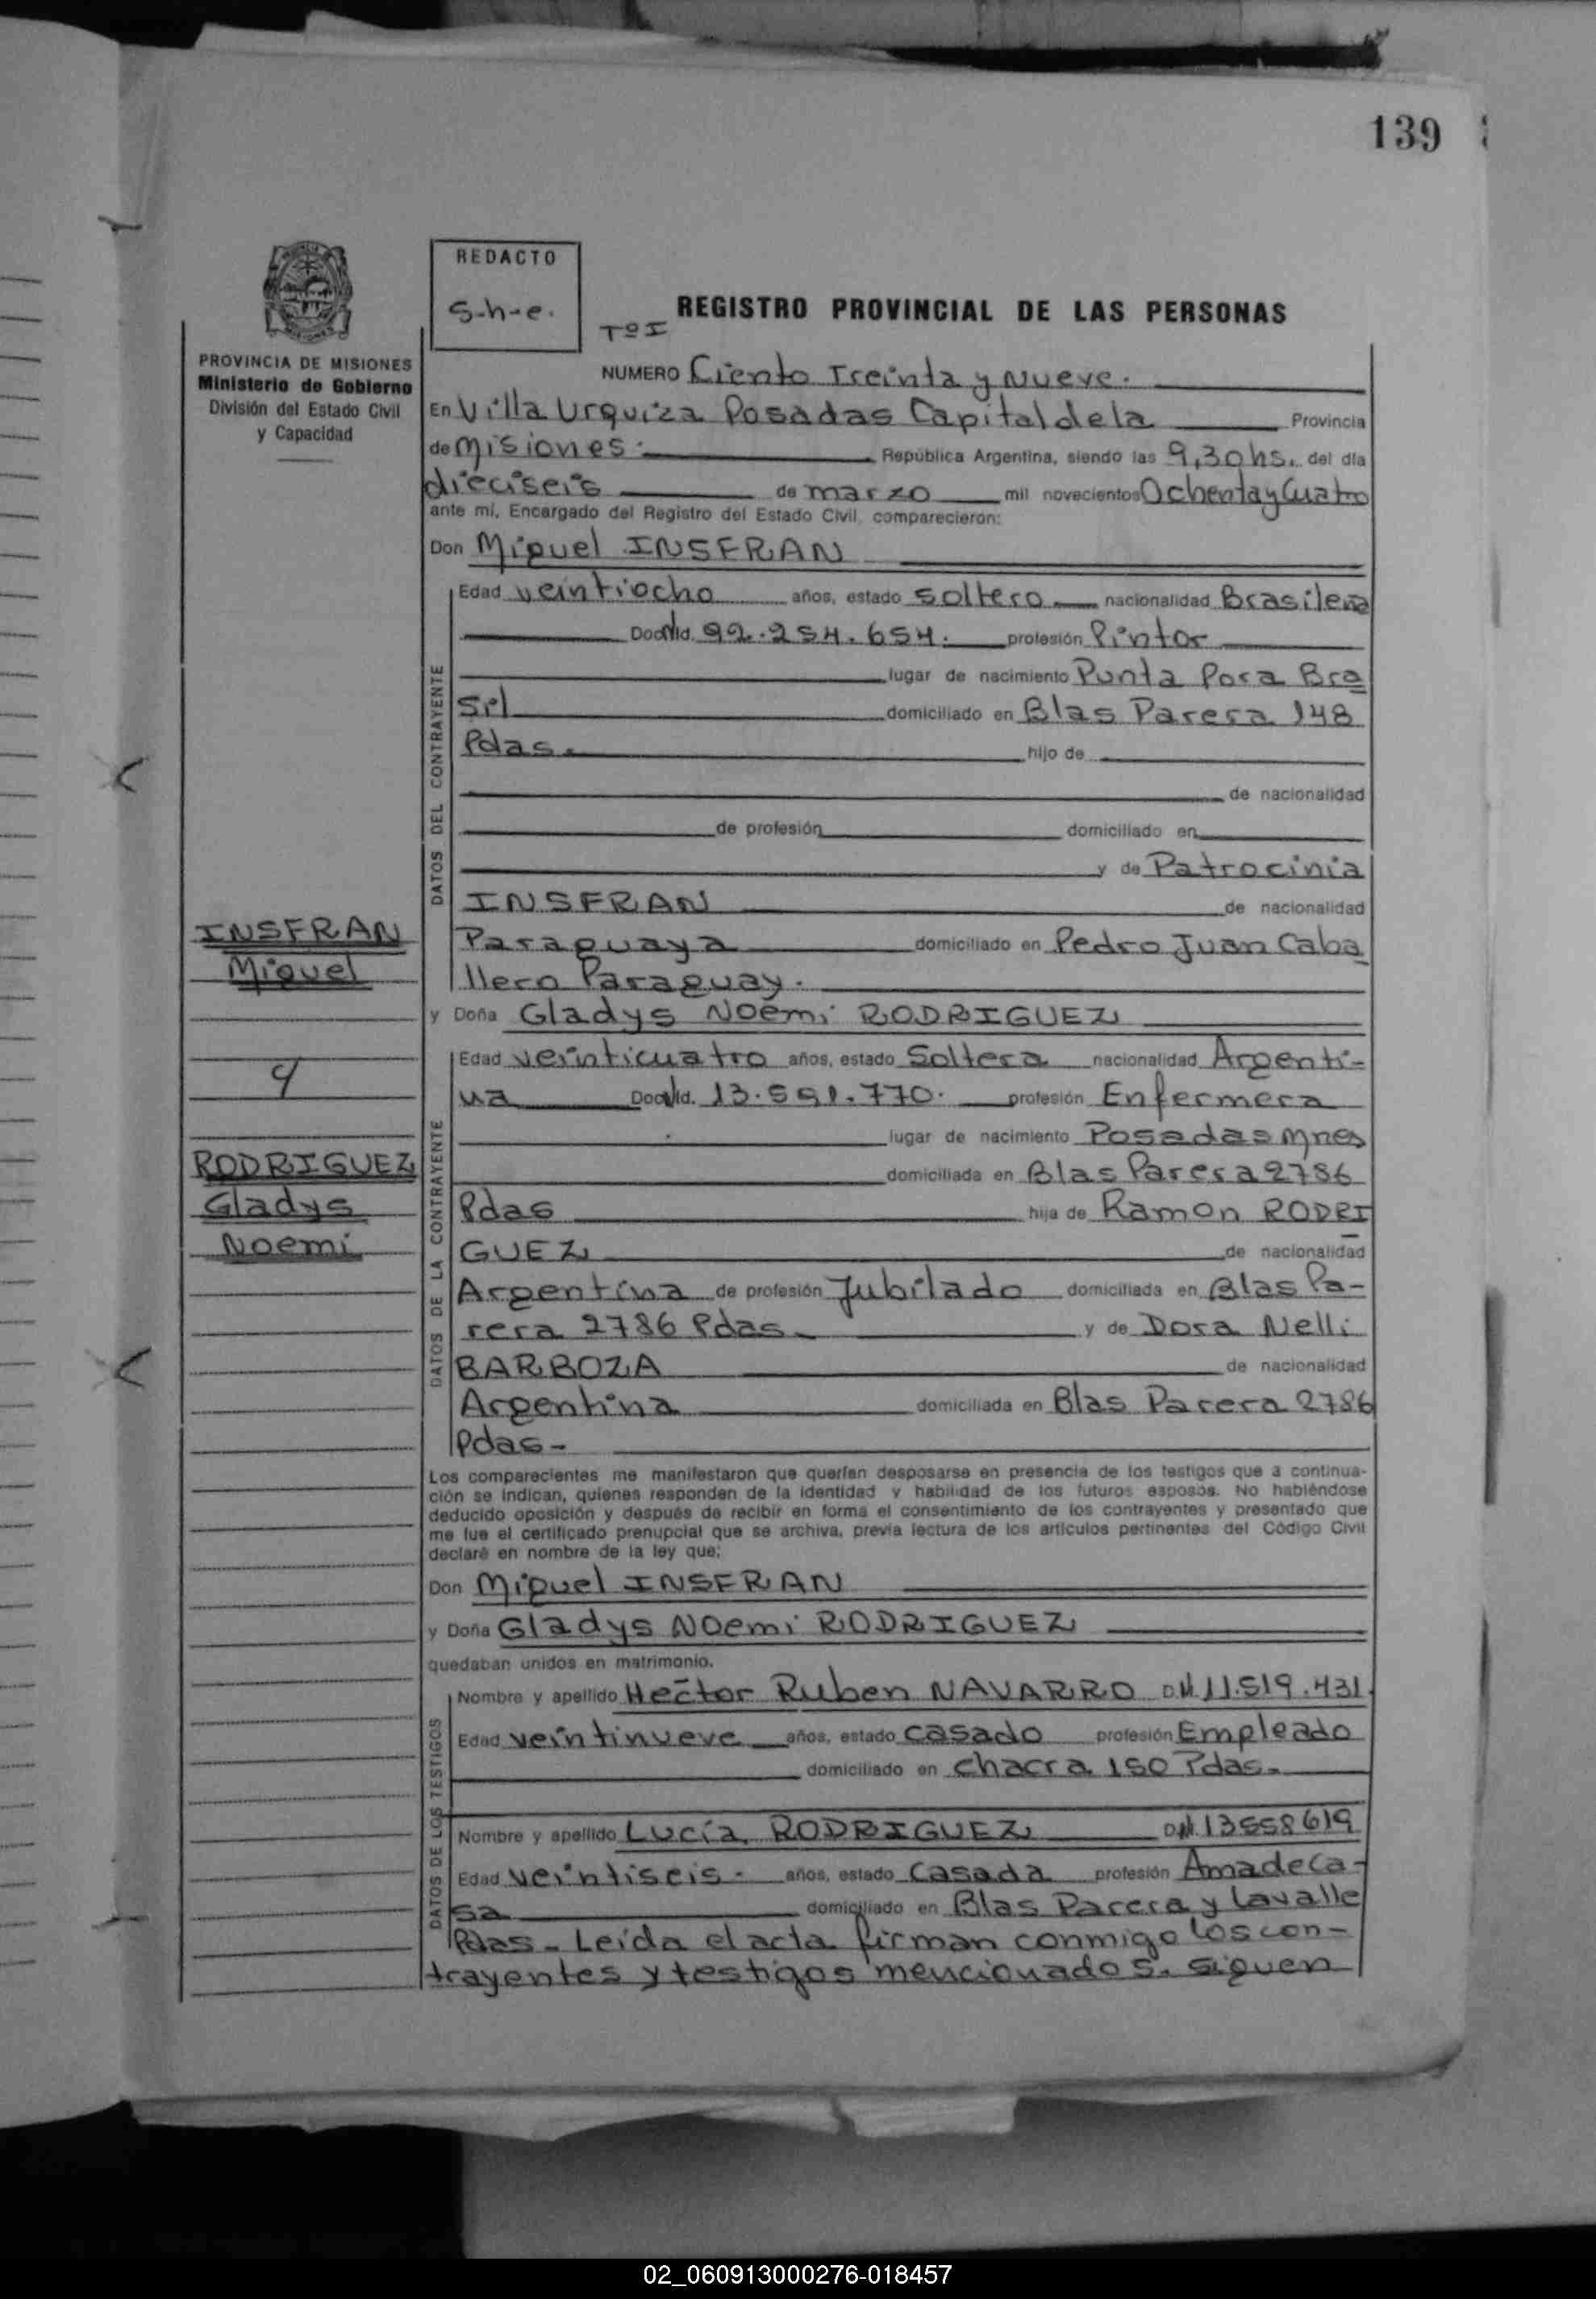 139
REDACTO
S-h-e.
REGISTRO PROVINCIAL DE LAS PERSONAS
Tº I
PROVINCIA DE MISIONES
Ministerio de Gobierno
División del Estado Civil
y Capacidad
NUMERO Ciento Treinta y Nueve.
En Villa Urquiza Posadas Capital de la Provincia
de Misiones. República Argentina, siendo las 9,30 hs. del día
dieciseis de marzo mil novecientos Ochenta y Cuatro
ante mí, Encargado del Registro del Estado Civil, comparecieron:
Don Miguel INSFRAN
DATOS DEL CONTRAYENTE
Edad veintiocho años, estado soltero nacionalidad Brasileña
Doc. Id. 92.254.654. profesión Pintor
lugar de nacimiento Punta Pora Bra
sil domiciliado en Blas Parera 148
Pdas. hijo de
de nacionalidad
de profesión domiciliado en
y de Patrocinia
INSFRAN de nacionalidad
Paraguaya domiciliado en Pedro Juan Caba
llero Paraguay.
INSFRAN
Miguel
y
RODRIGUEZ
Gladys
Noemi
y Doña Gladys Noemi RODRIGUEZ
DATOS DE LA CONTRAYENTE
Edad veinticuatro años, estado Soltera nacionalidad Argenti-
na Doc. Id. 13.591.770. profesión Enfermera
lugar de nacimiento Posadas Mnes
domiciliada en Blas Parera 2786
Pdas hija de Ramon RODRI
GUEZ de nacionalidad
Argentina de profesión Jubilado domiciliada en Blas Pa-
rera 2786 Pdas. y de Dora Nelli
BARBOZA de nacionalidad
Argentina domiciliada en Blas Parera 2786
Pdas-
Los comparecientes me manifestaron que querían desposarse en presencia de los testigos que a continua-
ción se indican, quienes responden de la identidad y habilidad de los futuros esposos. No habiéndose
deducido oposición y después de recibir en forma el consentimiento de los contrayentes y presentado que
me fue el certificado prenupcial que se archiva, previa lectura de los artículos pertinentes del Código Civil
declaré en nombre de la ley que:
Don Miguel INSFRAN
y Doña Gladys Noemi RODRIGUEZ
quedaban unidos en matrimonio.
DATOS DE LOS TESTIGOS
Nombre y apellido Hector Ruben NAVARRO 11.519.431.
Edad veintinueve años, estado casado profesión Empleado
domiciliado en Chacra 150 Pdas.
Nombre y apellido Lucía RODRIGUEZ 13558619
Edad veintiseis. años, estado Casada profesión Ama de Ca-
sa domiciliado en Blas Parera y Lavalle
Pdas- Leída el acta firman conmigo los con-
trayentes y testigos mencionados. siguen
02_060913000276-018457